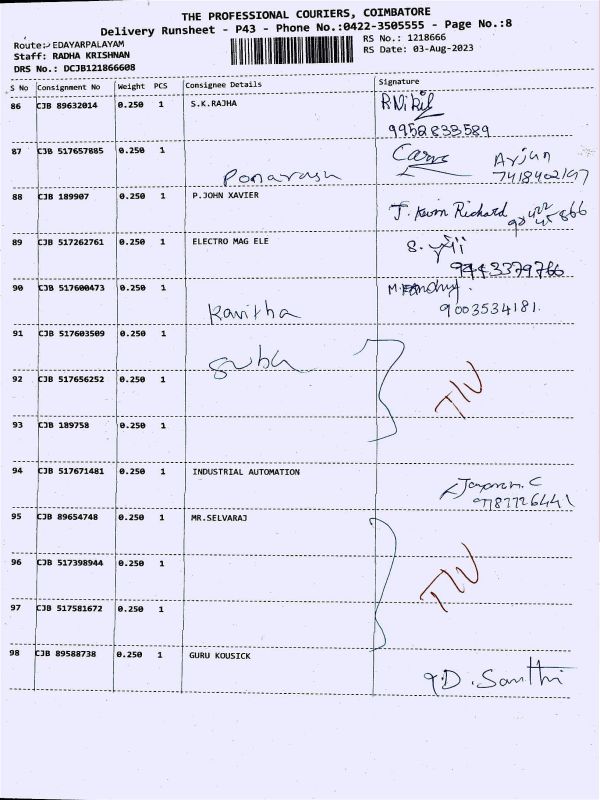 THE PROFESSIONAL COURIERS, COIMBATORE
Delivery Runsheet - P43 - Phone No.:0422-3505555 - Page No.:8
Route: EDAYARPALAYAM
RS No.: 1218666
Staff: RADHA KRISHNAN
RS Date: 03-Aug-2023
DRS No.: DCJB121866608
S No Consignment No Weight PCS Consignee Details Signature
86 CJB 89632014 0.250 1 S.K.RAJHA R.Nikil
9952833589
87 CJB 517657885 0.250 1 Ponarasu Arjun
7418402197
88 CJB 189907 0.250 1 P.JOHN XAVIER J. Kevin Richard
89 CJB 517262761 0.250 1 ELECTRO MAG ELE S.
9443379766
90 CJB 517600473 0.250 1 Kavitha M.
9003534181.
91 CJB 517603509 0.250 1 Suba
92 CJB 517656252 0.250 1
93 CJB 189758 0.250 1
94 CJB 517671481 0.250 1 INDUSTRIAL AUTOMATION
9787726441
95 CJB 89654748 0.250 1 MR.SELVARAJ
96 CJB 517398944 0.250 1
97 CJB 517581672 0.250 1
98 CJB 89588738 0.250 1 GURU KOUSICK D. Santhi